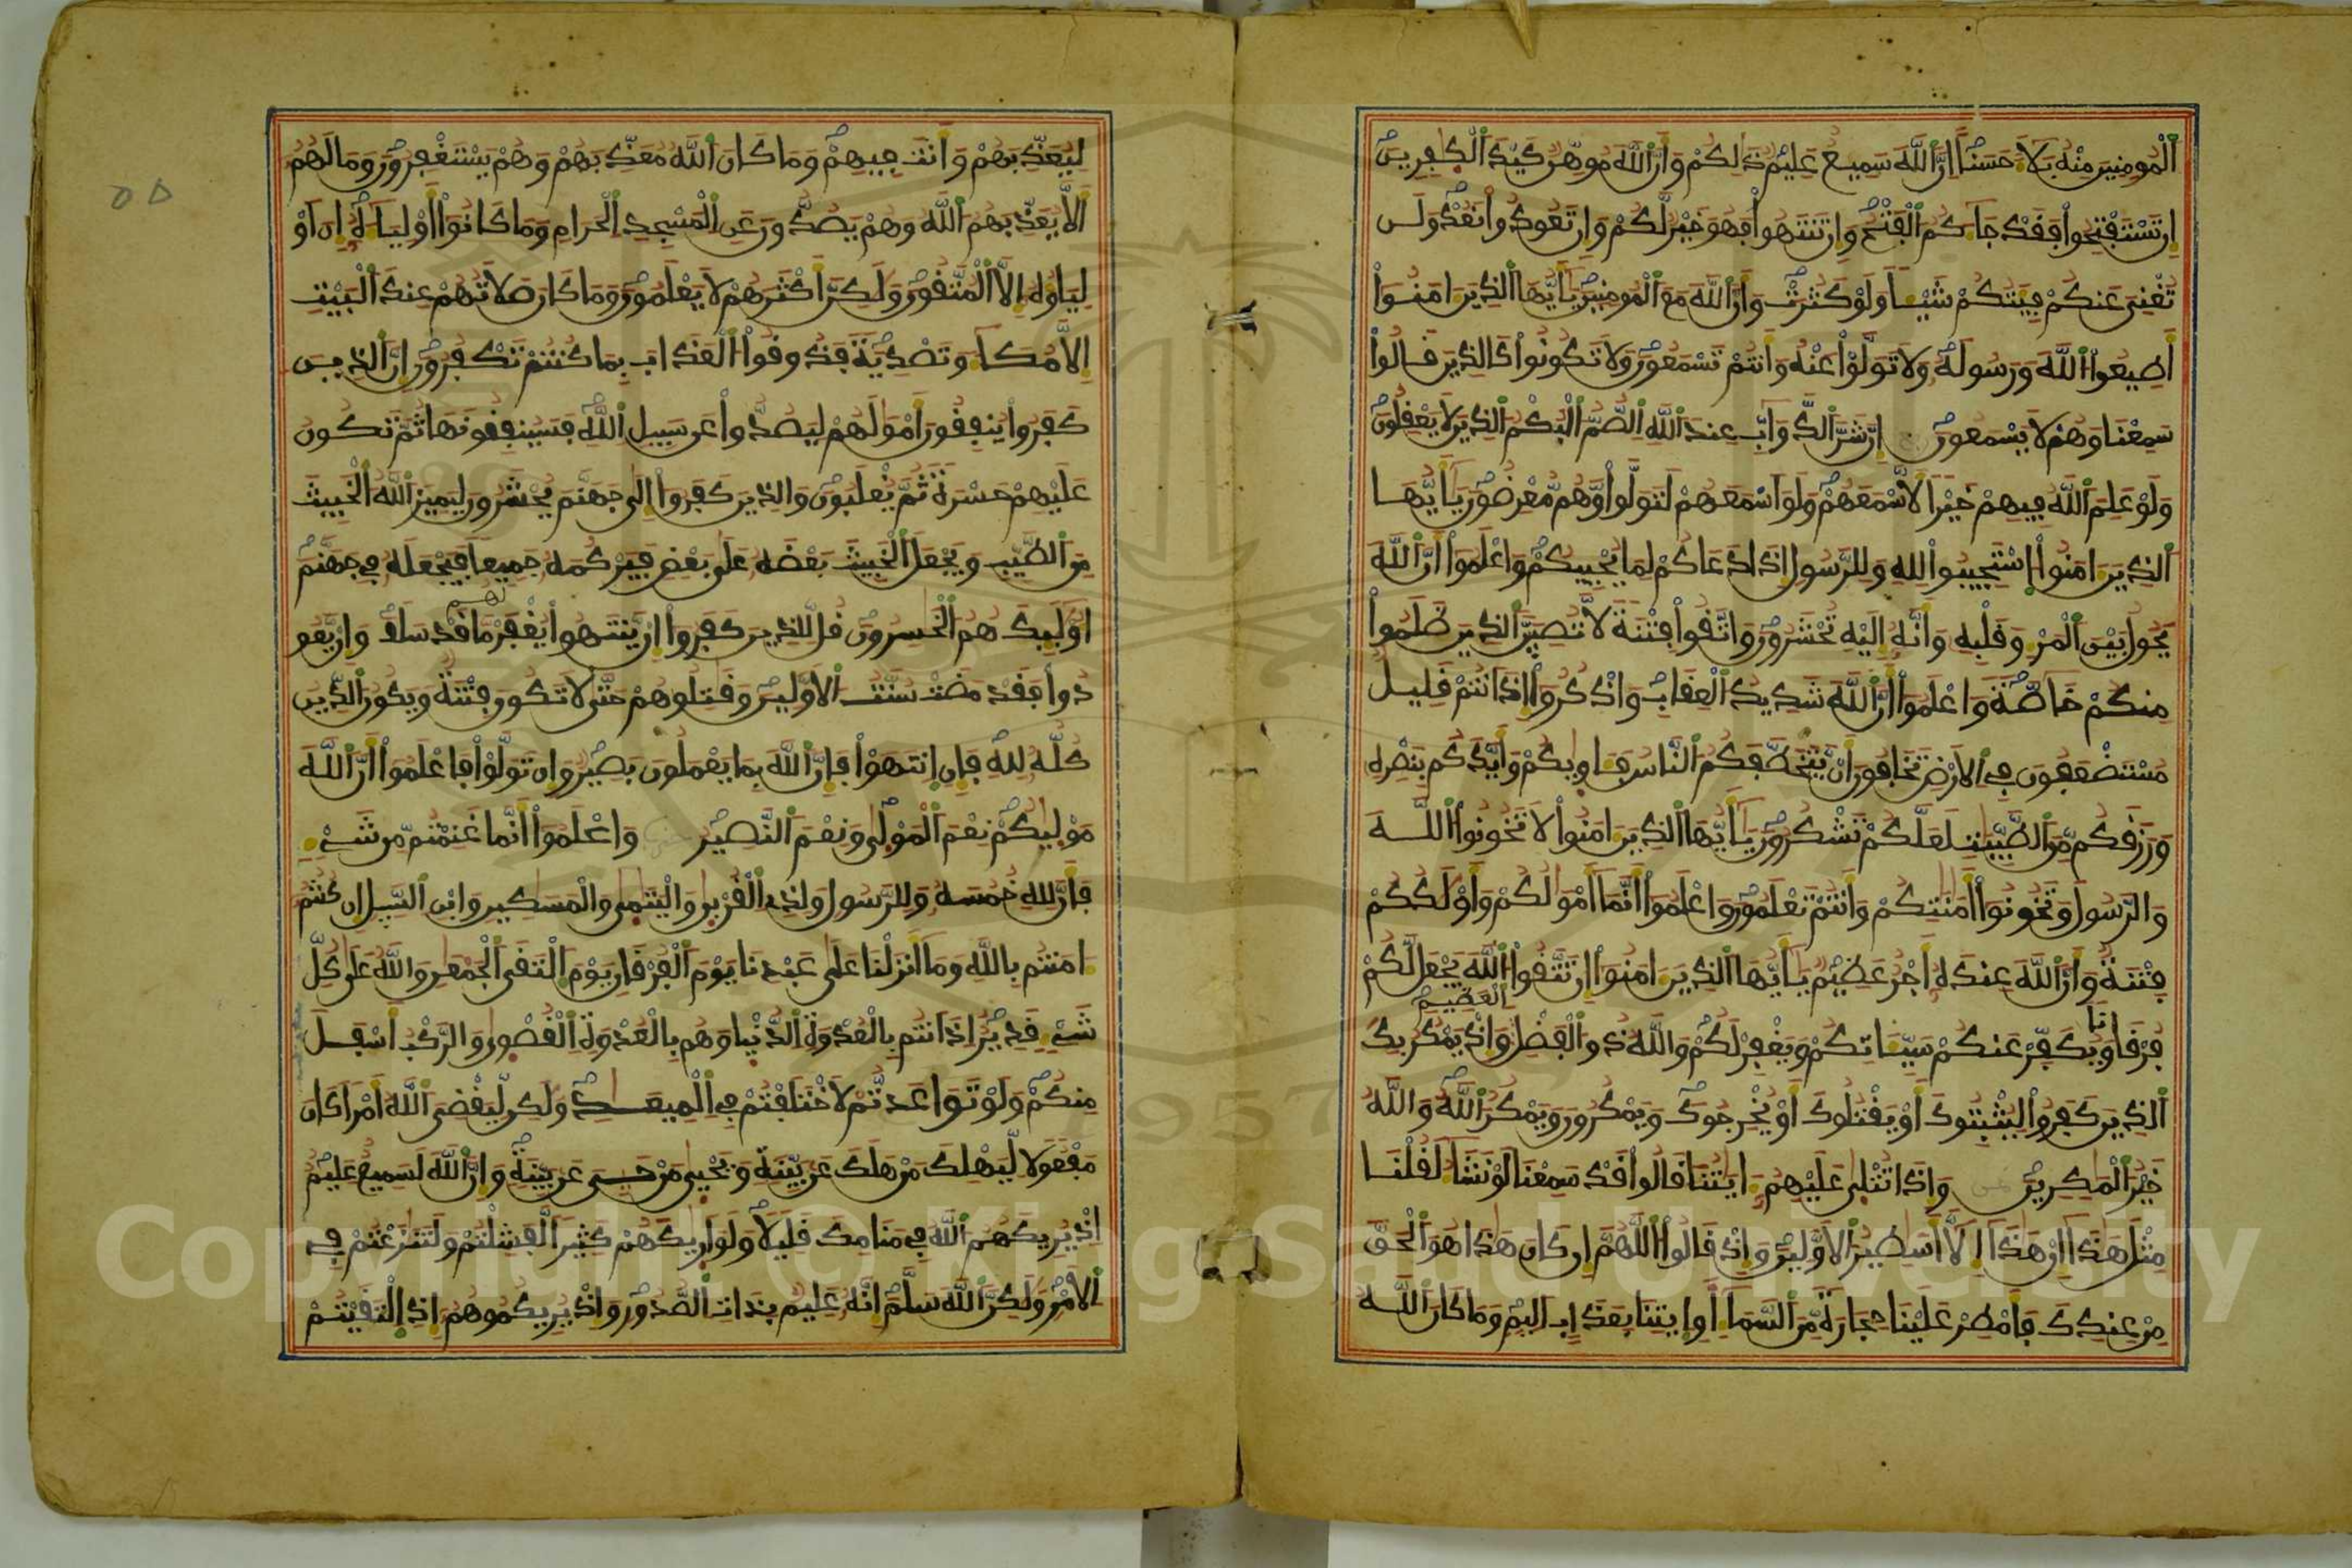 المومنين منه بلاء حسنا ان الله سميع عليم ذلكم وان الله موهن كيد الكفرين
ان تستفتحوا فقد جاكم الفتح وان تنتهوا فهو خير لكم وان تعودوا نعد ولن
تغني عنكم فيتكم شيئا ولو كثرت وان الله مع المومنين يايها الذين امنوا
اطيعوا الله ورسوله ولا تولوا عنه وانتم تسمعون ولا تكونوا كالذين قالوا
سمعنا وهم لا يسمعون ان شر الدواب عند الله الصم البكم الذين لا يعقلون
ولو علم الله فيهم خيرا لاسمعهم ولو اسمعهم لتولوا وهم معرضون يايها
الذين امنوا استجيبوا لله وللرسول اذا دعاكم لما يحييكم واعلموا ان الله
يحول بين المرء وقلبه وانه اليه تحشرون واتقوا فتنة لا تصيبن الذين ظلموا
منكم خاصة واعلموا ان الله شديد العقاب واذكروا اذ انتم قليل
مستضعفون في الارض تخافون ان يتخطفكم الناس فاويكم وايدكم بنصره
ورزقكم من الطيبت لعلكم تشكرون يايها الذين امنوا لا تخونوا الله
والرسول وتخونوا امنتكم وانتم تعلمون واعلموا انما امولكم واولدكم
فتنة وان الله عنده اجر عظيم يايها الذين امنوا ان تتقوا الله يجعل لكم
العظيم
فرقانا ويكفر عنكم سيئاتكم ويغفر لكم والله ذو الفضل واذ يمكر بك
الذين كفروا ليثبتوك او يقتلوك او يخرجوك ويمكرون ويمكر الله والله
خير المكرين واذا تتلى عليهم ايتنا قالوا قد سمعنا لو نشا لقلنا
مثل هذا ان هذا الا اسطير الاولين واذ قالوا اللهم ان كان هذا هو الحق
من عندك فامطر علينا حجارة من السما او ايتنا بعذاب اليم وما كان الله
ليعذبهم وانت فيهم وما كان الله معذبهم وهم يستغفرون وما لهم
الا يعذبهم الله وهم يصدون عن المسجد الحرام وما كانوا اولياءه ان او
لياؤه الا المتقون ولكن اكثرهم لا يعلمون وما كان صلاتهم عند البيت
الا مكاء وتصدية فذوقوا العذاب بما كنتم تكفرون ان الذين
كفروا ينفقون امولهم ليصدوا عن سبيل الله فسينفقونها ثم تكون
عليهم حسرة ثم يغلبون والذين كفروا الى جهنم يحشرون ليميز الله الخبيث
من الطيب ويجعل الخبيث بعضه على بعض فيركمه جميعا فيجعله في جهنم
لهم
اوليك هم الخسرون قل للذين كفروا ان ينتهوا يغفر ما قد سلف وان يعو
دوا فقد مضت سنت الاولين وقتلوهم حتى لا تكون فتنة ويكون الدين
كله لله فان انتهوا فان الله بما يعملون بصير وان تولوا فاعلموا ان الله
موليكم نعم المولى ونعم النصير واعلموا انما غنمتم من شيء
فان لله خمسه وللرسول ولذي القربى واليتمى والمسكين وابن السبيل ان كنتم
امنتم بالله وما انزلنا على عبدنا يوم الفرقان يوم التقى الجمعن والله على كل
شيء قدير اذ انتم بالعدوة الدنيا وهم بالعدوة القصوى والركب اسفل
منكم ولو تواعدتم لاختلفتم في الميعد ولكن ليقضي الله امرا كان
مفعولا ليهلك من هلك عن بينة ويحيى من حيي عن بينة وان الله لسميع عليم
اذ يريكهم الله في منامك قليلا ولو اريكهم كثيرا لفشلتم ولتنزعتم في
الامر ولكن الله سلم انه عليم بذات الصدور واذ يريكموهم اذ التقيتم
Copyright © King Saud University
1957